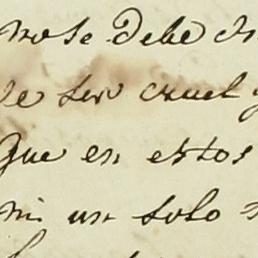 no se Debe
de ser cruel y
que en estos
ni un solo